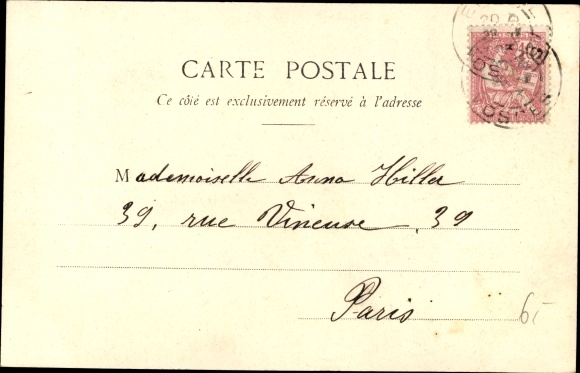 CARTE POSTALE
Ce côté est exclusivement réservé à l'adresse
Mademoiselle Anna Hiller
39, rue Vineuse, 39
Paris
6-